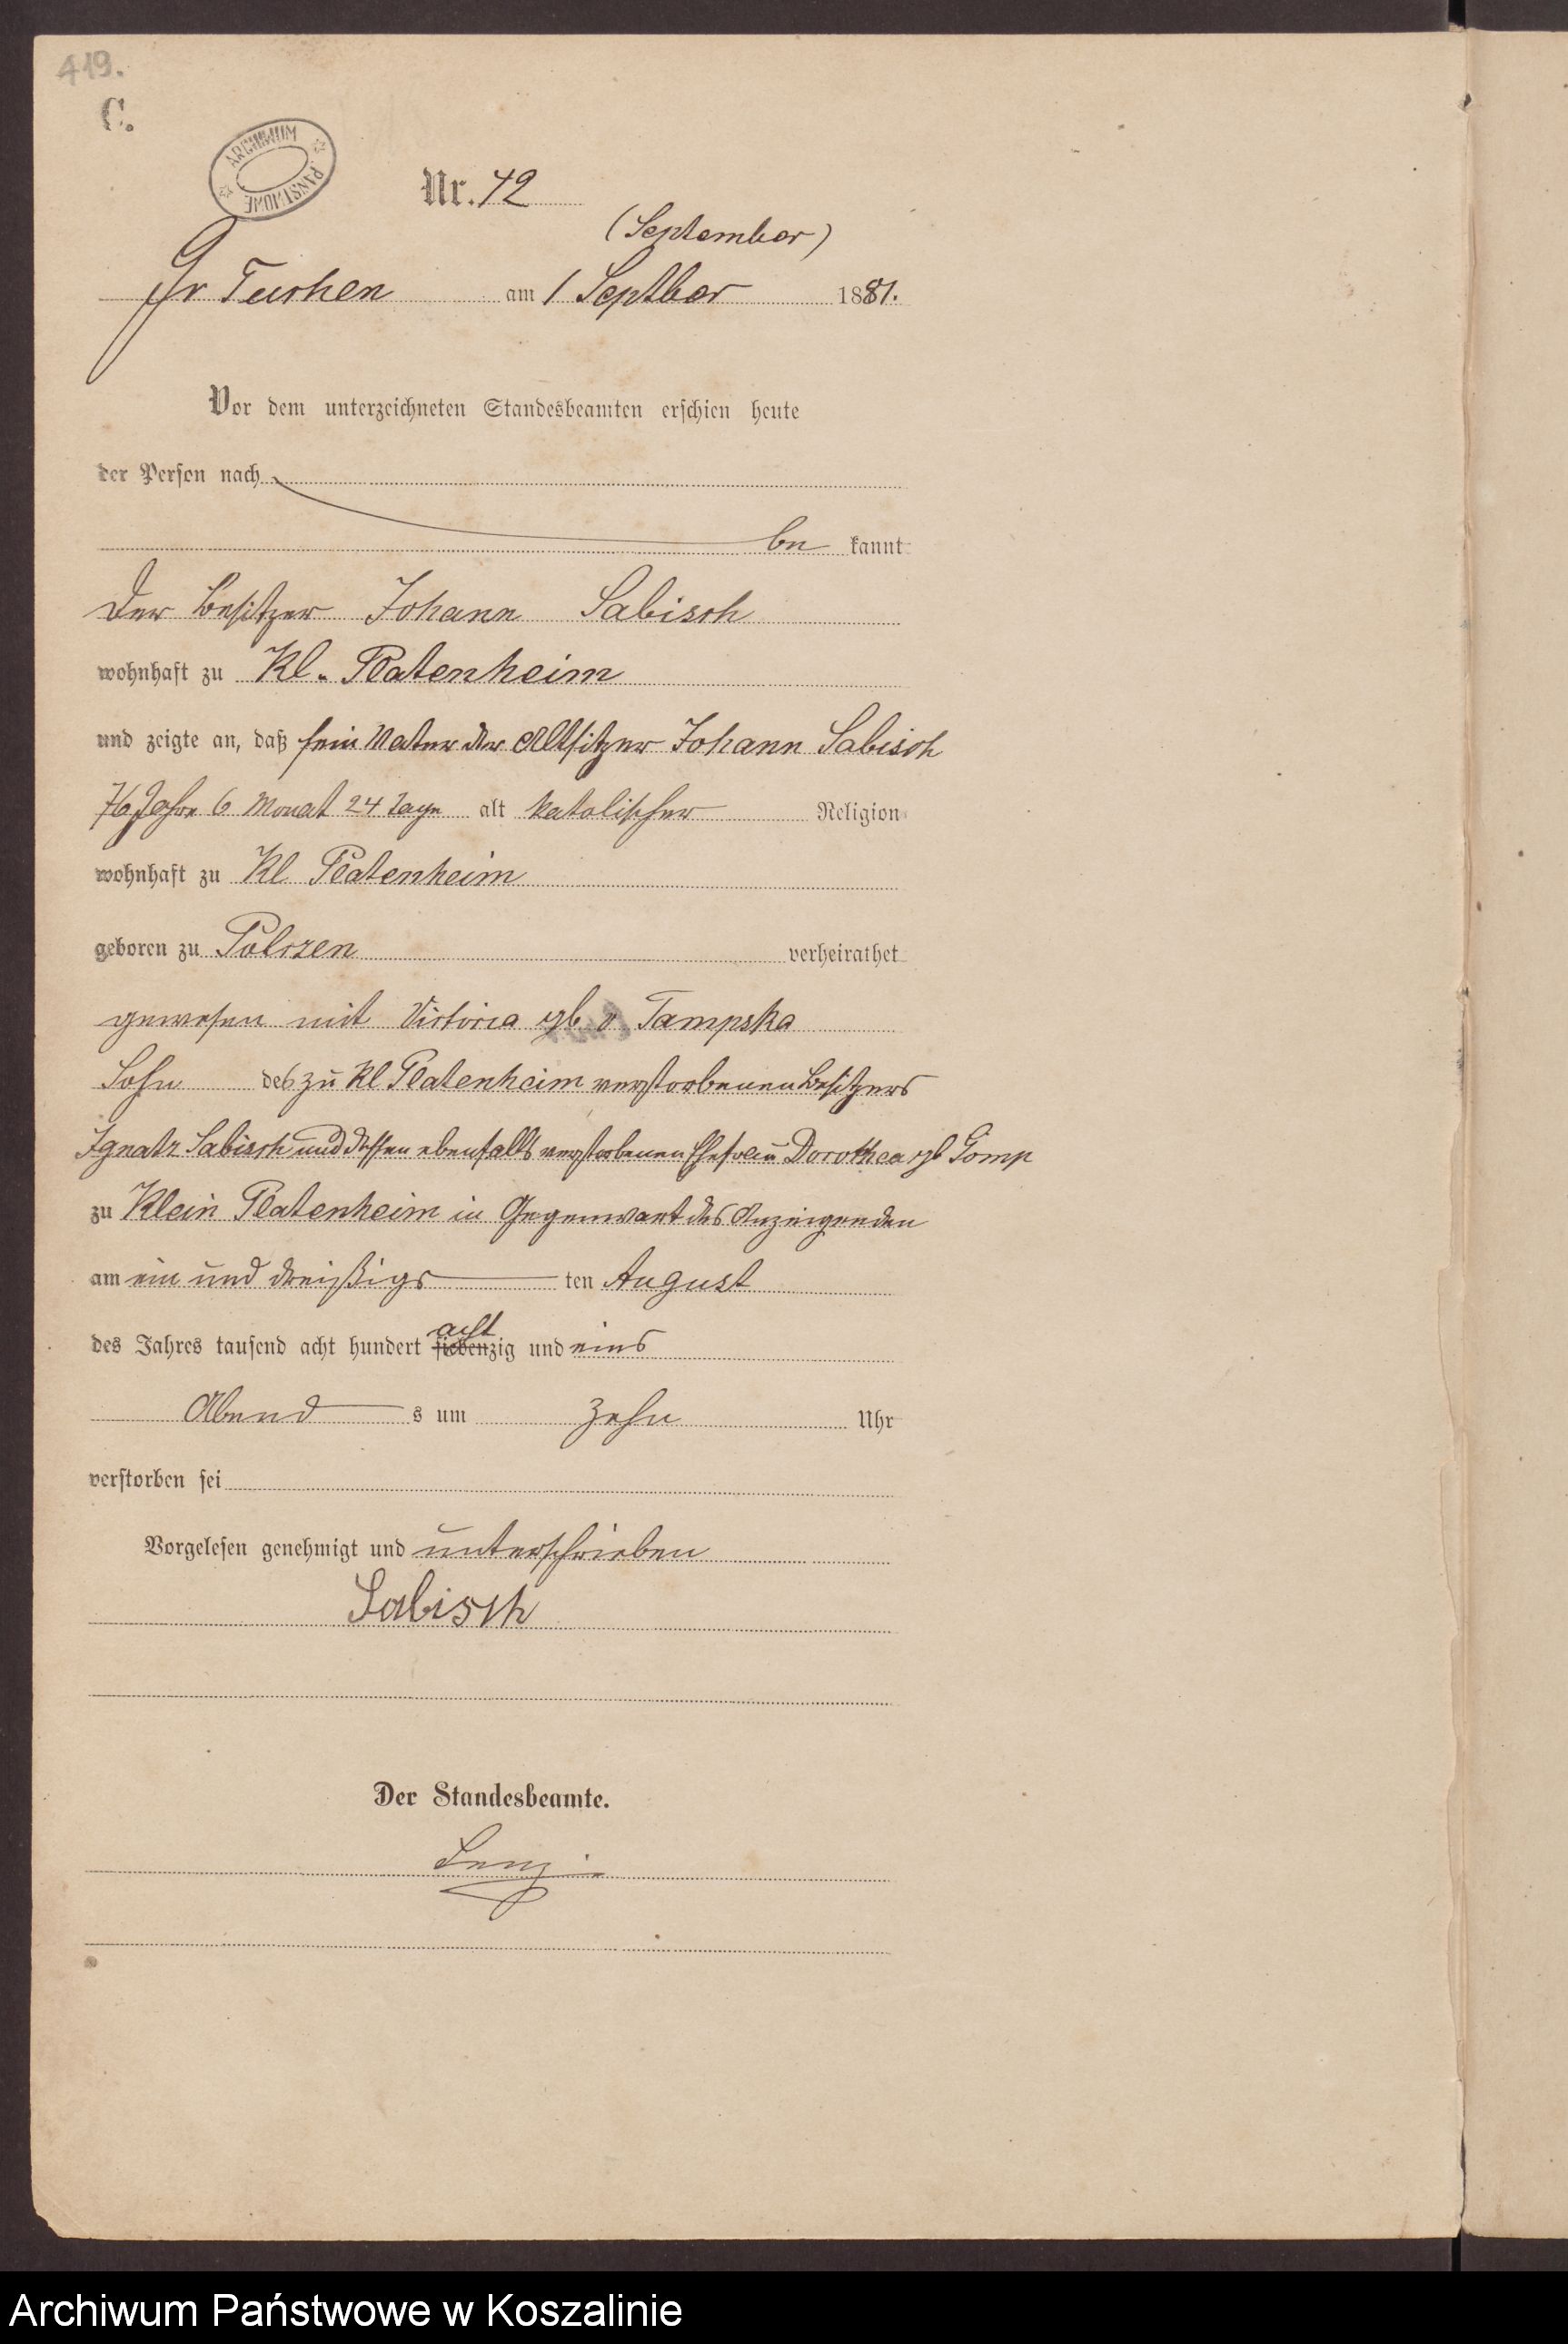 419.
C.
ARCHIWUM PAŃSTWOWE
Nr. 42
(September)
Gr Tuchen am 1 Septber 1881.
Vor dem unterzeichneten Standesbeamten erschien heute
der Person nach
be kannt
Der Besitzer Johann Sabisch
wohnhaft zu Kl. Platenheim
und zeigte an, daß sein Vater der Altsitzer Johann Sabisch
76 Jahre 6 Monat 24 Tage alt katolischer Religion
wohnhaft zu Kl Platenheim
geboren zu Polczen verheirathet
gewesen mit Victoria geb v Tampska
Sohn des zu Kl Platenheim verstorbenen Besitzers
Ignatz Sabisch und dessen ebenfalls verstorbenen Ehefrau Dorothea geb Gomp
zu Klein Platenheim in Gegenwart des Anzeigenden
am ein und dreißigs ten August
des Jahres tausend acht hundert siebenzig acht und eins
Abend s um zehn Uhr
verstorben sei
Vorgelesen genehmigt und unterschrieben
Sabisch
Der Standesbeamte.
Lenz
Archiwum Państwowe w Koszalinie